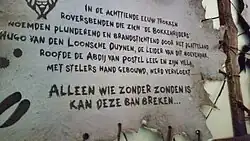 IN DE ACHTTIENDE EEUW TROKKEN
ROVERSBENDEN DIE ZICH 'DE BOKKERIJDERS'
NOEMDEN PLUNDEREND EN BRANDSTICHTEND DOOR HET PLATTELAND
HUGO VAN DEN LOONSCHE DUYNEN, DE LEIDER VAN DIT ROVERSTUIG,
ROOFDE DE ABDIJ VAN POSTEL LEEG EN ZIJN VILLA,
MET STELERS HAND GEBOUWD, WERD VERVLOEKT
ALLEEN WIE ZONDER ZONDEN IS
KAN DEZE BAN BREKEN...